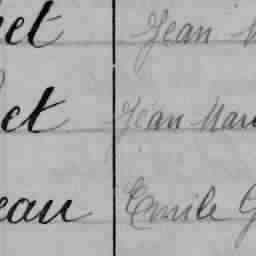 et Jean
et Jean Mari
eau Emile G